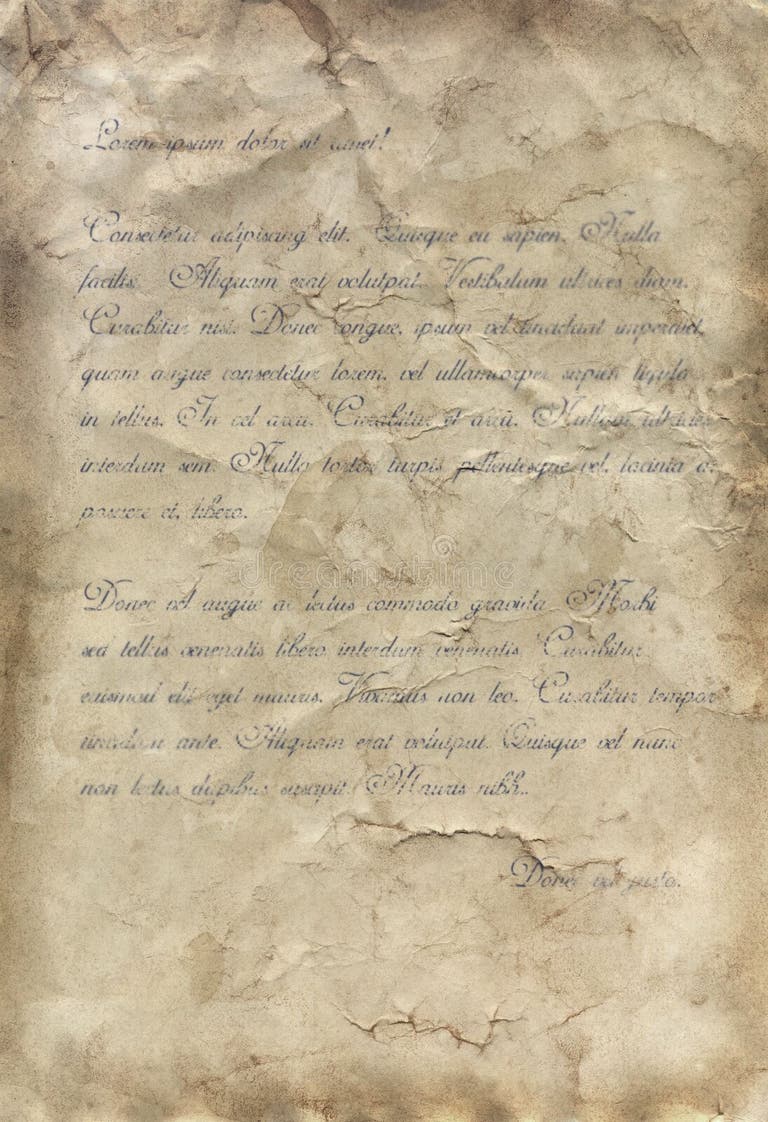 Lorem ipsum dolor sit amet!
Consectetur adipiscing elit. Quisque eu sapien. Nulla
facilis. Aliquam erat volutpat. Vestibulum ultrices diam.
Curabitur nisi. Donec congue, ipsum vel tincidunt imperdiet,
quam augue consectetur lorem, vel ullamcorper sapien ligula
in tellus. In vel arcu. Curabitur et arcu. Nullam ultricies
interdum sem. Nulla tortor turpis pellentesque vel, lacinia a,
posuere et, libero.
dreamstime.
Donec vel augue ac lectus commodo gravida. Morbi
sed tellus venenatis libero interdum venenatis. Curabitur
euismod elit eget mauris. Vivamus non leo. Curabitur tempor
tincidunt ante. Aliquam erat volutpat. Quisque vel nunc
non lectus dapibus suscipit. Mauris nibh..
Donec vel justo.